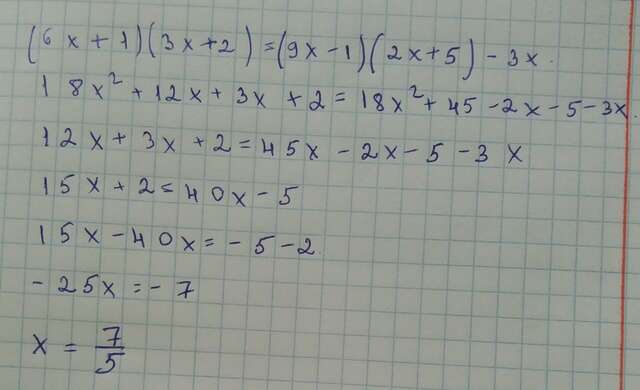 (6x+1)(3x+2)=(9x-1)(2x+5)-3x.
18x²+12x+3x+2=18x²+45-2x-5-3x.
12x+3x+2=45x-2x-5-3x
15x+2=40x-5
15x-40x=-5-2
-25x=-7
x=7/5